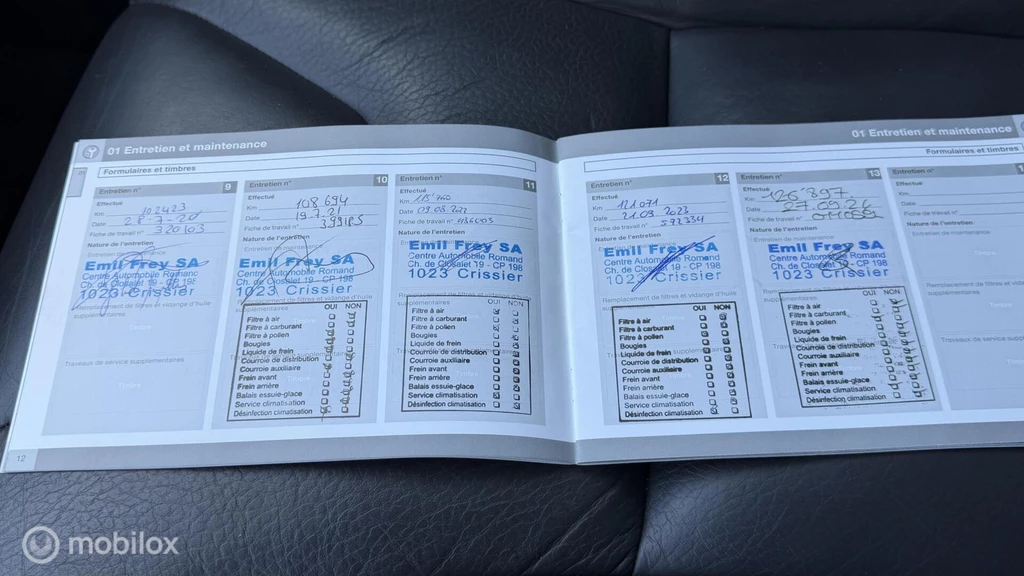 01 Entretien et maintenance
Formulaires et timbres
Entretien n° 9
Effectué
Km 102423
Date 28-7-20
Fiche de travail n° 320103
Nature de l'entretien
Emil Frey SA
Centre Automobile Romand
Ch. de Closalet 19 - CP 198
1023 Crissier
Remplacement de filtres et vidange d'huile
supplémentaires
Timbre
Travaux de service supplémentaires
Timbre
12
Entretien n° 10
Effectué
Km 108 694
Date 19.7.21
Fiche de travail n°
Nature de l'entretien
Entretien de maintenance
Emil Frey SA
Centre Automobile Romand
Ch. de Closalet 19 - CP 198
1023 Crissier
Remplacement de filtres et vidange d'huile
supplémentaires
OUI NON
Filtre à air
Filtre à carburant
Filtre à pollen
Bougies
Liquide de frein
Courroie de distribution
Courroie auxiliaire
Frein avant
Frein arrière
Balais essuie-glace
Service climatisation
Désinfection climatisation
Entretien n° 11
Effectué
Km
Date 09.08.2022
Fiche de travail n°
Nature de l'entretien
Emil Frey SA
Centre Automobile Romand
Ch. de Closalet 19 - CP 198
1023 Crissier
OUI NON
Filtre à air
Filtre à carburant
Filtre à pollen
Bougies
Liquide de frein
Courroie de distribution
Courroie auxiliaire
Frein avant
Frein arrière
Balais essuie-glace
Service climatisation
Désinfection climatisation
01 Entretien et maintenance
Formulaires et timbres
Entretien n° 12
Effectué
Km 121 071
Date 21.09.2023
Fiche de travail n° 592334
Nature de l'entretien
Emil Frey SA
Centre Automobile Romand
Ch. de Closalet 19 - CP 198
1023 Crissier
Remplacement de filtres et vidange d'huile
supplémentaires
OUI NON
Filtre à air
Filtre à carburant
Filtre à pollen
Bougies
Liquide de frein
Courroie de distribution
Courroie auxiliaire
Frein avant
Frein arrière
Balais essuie-glace
Service climatisation
Désinfection climatisation
Entretien n° 13
Effectué
Km 126'897
Date 27.09.24
Fiche de travail n°
Nature de l'entretien
Entretien de maintenance
Emil Frey SA
Centre Automobile Romand
Ch. de Closalet 19 - CP 198
1023 Crissier
supplémentaires
OUI NON
Filtre à air
Filtre à carburant
Filtre à pollen
Bougies
Liquide de frein
Courroie de distribution
Courroie auxiliaire
Frein avant
Frein arrière
Balais essuie-glace
Service climatisation
Désinfection climatisation
Entretien n°
Effectué
Km
Date
Fiche de travail n°
Nature de l'entretien
Entretien de maintenance
Remplacement de filtres et
supplémentaires
Travaux de service
mobilox